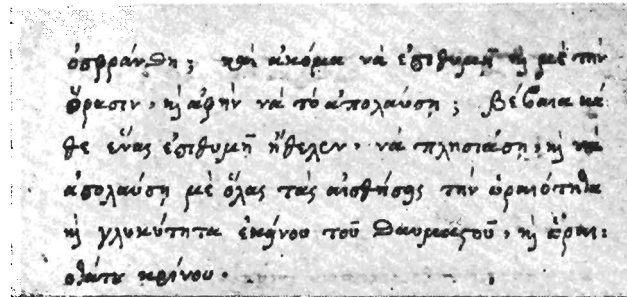 ὀσφράνθη; καὶ ἀκόμα νὰ ἐπιθυμῇ κὶ μὲ τὴν
ὅρασιν, κὶ ἀφὴν νὰ τὸ ἀπολαύσῃ; βέβαια κά
θε ἕνας ἐπιθυμῇ ἤθελεν, νὰ πλησιάσῃ, κὶ νὰ
ἀπολαύσῃ μὲ ὅλας τὰς αἰσθήσης τὴν ὡραιότητα
κὶ γλυκύτητα ἐκήνου τοῦ θαυμαστοῦ, κὶ ὡραι:
οτάτου κρίνου.